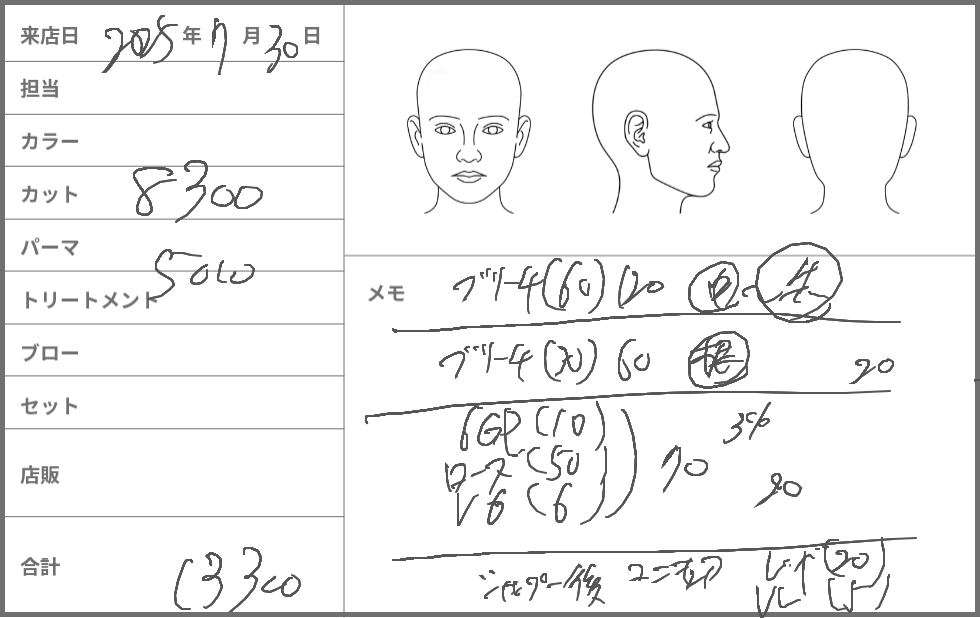 来店日 2025年7月30日
担当
カラー
カット 8300
パーマ
トリートメント 5000
ブロー
セット
店販
合計 13300
メモ
ブリーチ(60) 120 中〜先
ブリーチ(30) 60 根 20
6GP(10)
ローズ(50)
V6(6)
70 3% 20
シャンプー後 ユニネロ レッド(20)